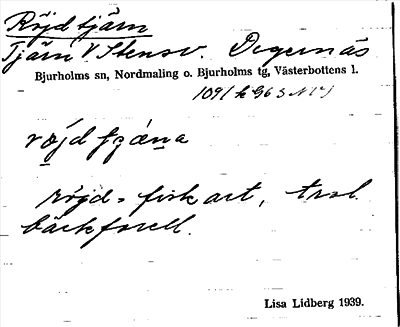 Röjdtjärn
Tjärn V Stensv. Degernäs
Bjurholms sn, Nordmaling o. Bjurholms tg, Västerbottens l.
1091 k 963
röjd
röjd = fiskart, trol.
bäckforell.
Lisa Lidberg 1939.